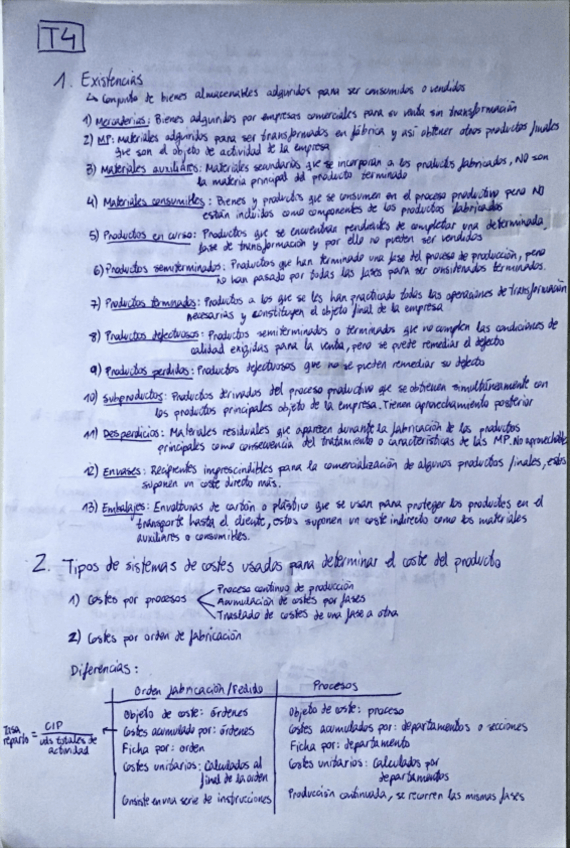 T4
1. Existencias
↳ Conjunto de bienes almacenables adquiridos para ser consumidos o vendidos
1) Mercaderías: Bienes adquiridos por empresas comerciales para su venta sin transformación
2) MP: Materiales adquiridos para ser transformados en fábrica y así obtener otros productos finales
que son el objeto de actividad de la empresa
3) Materiales auxiliares: Materiales secundarios que se incorporan a los productos fabricados, NO son
la materia principal del producto terminado
4) Materiales consumibles: Bienes y productos que se consumen en el proceso productivo pero NO
están incluidos como componentes de los productos fabricados
5) Productos en curso: Productos que se encuentran pendientes de completar una determinada
fase de transformación y por ello no pueden ser vendidos
6) Productos semiterminados: Productos que han terminado una fase del proceso de producción, pero
no han pasado por todas las fases para ser considerados terminados.
7) Productos terminados: Productos a los que se les han practicado todas las operaciones de transformación
necesarias y constituyen el objeto final de la empresa
8) Productos defectuosos: Productos semiterminados o terminados que no cumplen las condiciones de
calidad exigidas para la venta, pero se puede remediar el defecto
9) Productos perdidos: Productos defectuosos que no se pueden remediar su defecto
10) Subproductos: Productos derivados del proceso productivo que se obtienen simultáneamente con
los productos principales objeto de la empresa. Tienen aprovechamiento posterior
11) Desperdicios: Materiales residuales que aparecen durante la fabricación de los productos
principales como consecuencia del tratamiento o características de las MP. No aprovechable
12) Envases: Recipientes imprescindibles para la comercialización de algunos productos finales, estos
suponen un coste directo más.
13) Embalajes: Envolturas de cartón o plástico que se usan para proteger los productos en el
transporte hasta el cliente, estos suponen un coste indirecto como los materiales
auxiliares o consumibles.
2. Tipos de sistemas de costes usados para determinar el coste del producto
1) Costes por procesos
Proceso continuo de producción
Acumulación de costes por fases
Traslado de costes de una fase a otra
2) Costes por orden de fabricación
Diferencias:
Orden fabricación/Pedido Procesos
Objeto de coste: órdenes Objeto de coste: proceso
Tasa reparto = CIP / uds totales de actividad
Costes acumulado por: órdenes Costes acumulados por: departamentos o secciones
Ficha por: orden Ficha por: departamento
Costes unitarios: Calculados al Costes unitarios: Calculados por
final de la orden departamentos
Consiste en una serie de instrucciones Producción continuada, se recorren las mismas fases